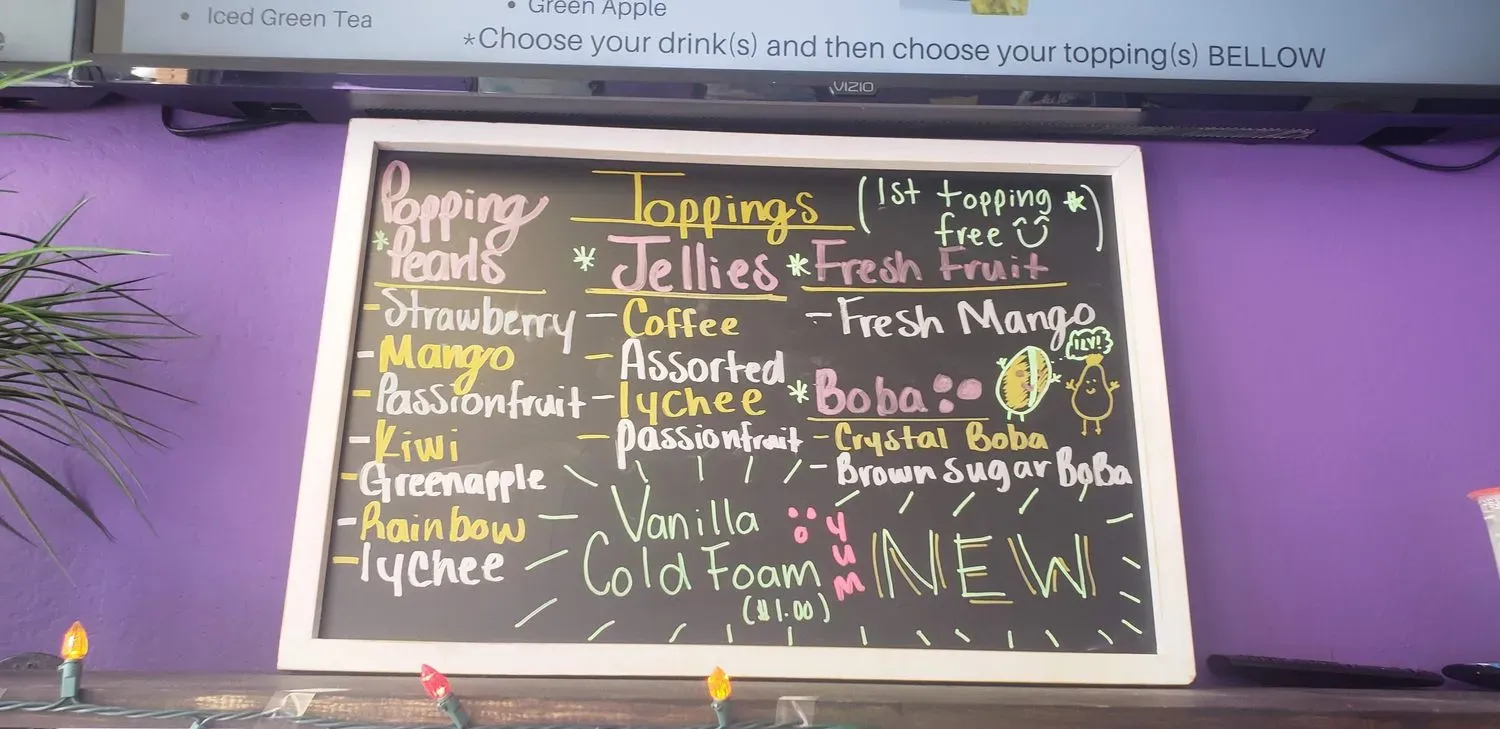 • Iced Green Tea
• Green Apple
*Choose your drink(s) and then choose your topping(s) BELLOW
VIZIO
Toppings
(1st topping *)
free
Popping
* Pearls
- Strawberry
- Mango
- Passionfruit
- Kiwi
- Greenapple
- Rainbow
- lychee
* Jellies
- Coffee
- Assorted
- lychee
- passionfruit
* Fresh Fruit
- Fresh Mango
ILY!
* Boba
- Crystal Boba
- Brown Sugar BoBa
Vanilla
Cold Foam
($1.00)
YUM
NEW